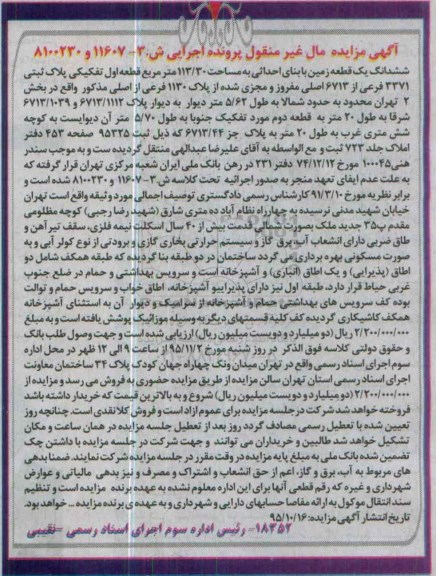 آگهی مزایده مال غیر منقول پرونده اجرایی ش.۳- ۱۱۶۰۷ و ۸۱۰۰۲۳۰
ششدانگ یک قطعه زمین با بنای احداثی به مساحت ۱۱۳/۳۰ متر مربع قطعه اول تفکیکی پلاک ثبتی
۳۳۷۱ فرعی از ۶۷۱۳ اصلی مفروز و مجزی شده از پلاک ۱۱۳۰ فرعی از اصلی مذکور واقع در بخش
۲ تهران محدود به حدود شمالا به طول ۵/۶۲ متر دیوار به دیوار پلاک ۶۷۱۳/۱۱۱۲ و ۶۷۱۳/۱۰۳۹
شرقا به طول ۲۰ متر به قطعه دوم مورد تفکیک جنوبا به طول ۵/۷۰ متر آن دیوایست به کوچه
شش متری غرب به طول ۲۰ متر به پلاک جز ۶۷۱۳/۴۴ که ذیل ثبت ۹۵۳۲۵ صفحه ۴۵۳ دفتر
املاک جلد ۷۲۳ ثبت و مع الواسطه به آقای علیرضا عبدالهی منتقل گردیده ست و به موجب سند
هنی ۱۰۰۰۴۵ مورخ ۷۴/۱۲/۱۲ دفتر ۲۳۱ در رهن بانک ملی ایران شعبه مرکزی تهران قرار گرفته که
به علت عدم ایفای تعهد منجر به صدور اجرائیه تحت کلاسه ش.۳-۱۱۶۰۷ و ۸۱۰۰۲۳۰ شده است و
برابر نظریه مورخ ۹۱/۳/۱۰ کارشناس رسمی دادگستری توصیف اجمالی مورد وثیقه واقع است تهران
خیابان شهید مدنی نرسیده به چهارراه نظام آباد ده متری شارق (شهید رضا رجبی) کوچه مظلومی
مقدم پ ۳۵ جدید ملک بصورت شمالی قدمت بیش از ۴۰ سال اسکلت نیمه فلزی، سقف تیر آهن و
طاق ضربی دارای انشعاب آب، برق گاز و سیستم حرارتی بخاری گازی و برودتی از نوع کولر آبی و به
صورت مسکونی بهره برداری می گردد ساختمان در دو طبقه بنا گردیده که طبقه همکف شامل دو
اطاق (پذیرایی) و یک اطاق (انباری) و آشپزخانه است و سرویس بهداشتی و حمام در ضلع جنوب
غربی حیاط قرار دارد، طبقه اول نیز دارای پذیراییو آشپزخانه، اطاق خواب و سرویس حمام و توالت
بوده کف سرویس های بهداشتی حمام و آشپزخانه از سرامیک و دیوار آن به استثنای آشپزخانه
همکف کاشیکاری گردیده کف کلیه قسمتهای دیگر به وسیله موزائیک پوشش یافته است و به مبلغ
۲/۲۰۰/۰۰۰/۰۰۰ ریال (دو میلیارد و دویست میلیون ریال) ارزیابی شده است و جهت وصول طلب بانک
و حقوق دولتی کلاسه فوق الذکر در روز شنبه مورخ ۹۵/۱۱/۲ از ساعت ۹ الی ۱۲ ظهر در محل اداره
سوم اجرای اسناد رسمی واقع در تهران میدان ونک چهارراه جهان کودک پلاک ۳۴ ساختمان معاونت
اجرای اسناد رسمی استان تهران سالن مزایده از طریق مزایده حضوری به فروش می رسد و مزایده از
۲/۲۰۰/۰۰۰/۰۰۰ (دو میلیارد و دویست میلیون ریال) شروع و به بالاترین قیمت که خریدار داشته باشد
فروخته خواهد شد شرکت در جلسه مزایده برای عموم ازاد است و فروش کلا نقدی است. چنانچه روز
تعیین شده با تعطیل رسمی مصادف گردد روز بعد از تعطیل جلسه مزایده در همان ساعت و مکان
تشکیل خواهد شد طالبین و خریداران می توانند و جهت شرکت در جلسه مزایده با داشتن چک
تضمین شده بانک ملی به مبلغ پایه مزایده در وقت مقرر در جلسه مزایده شرکت نمایند. ضمنا بدهی
های مربوط به آب، برق و گاز، اعم از حق انشعاب و اشتراک و مصرف و نیز بدهی مالیاتی و عوارض
شهرداری و غیره که رقم قطعی آنها برای این اداره معلوم نشده به عهده برنده مزایده است و تنظیم
سند انتقال موکول به ارائه مفاصا حسابهای دارایی و شهرداری و به عهده ی برنده مزایده .. خواهد بود.
تاریخ انتشار آگهی مزایده: ۹۵/۱۰/۱۶
۱۸۳۵۲- رئیس اداره سوم اجرای اسناد رسمی -نقیبی